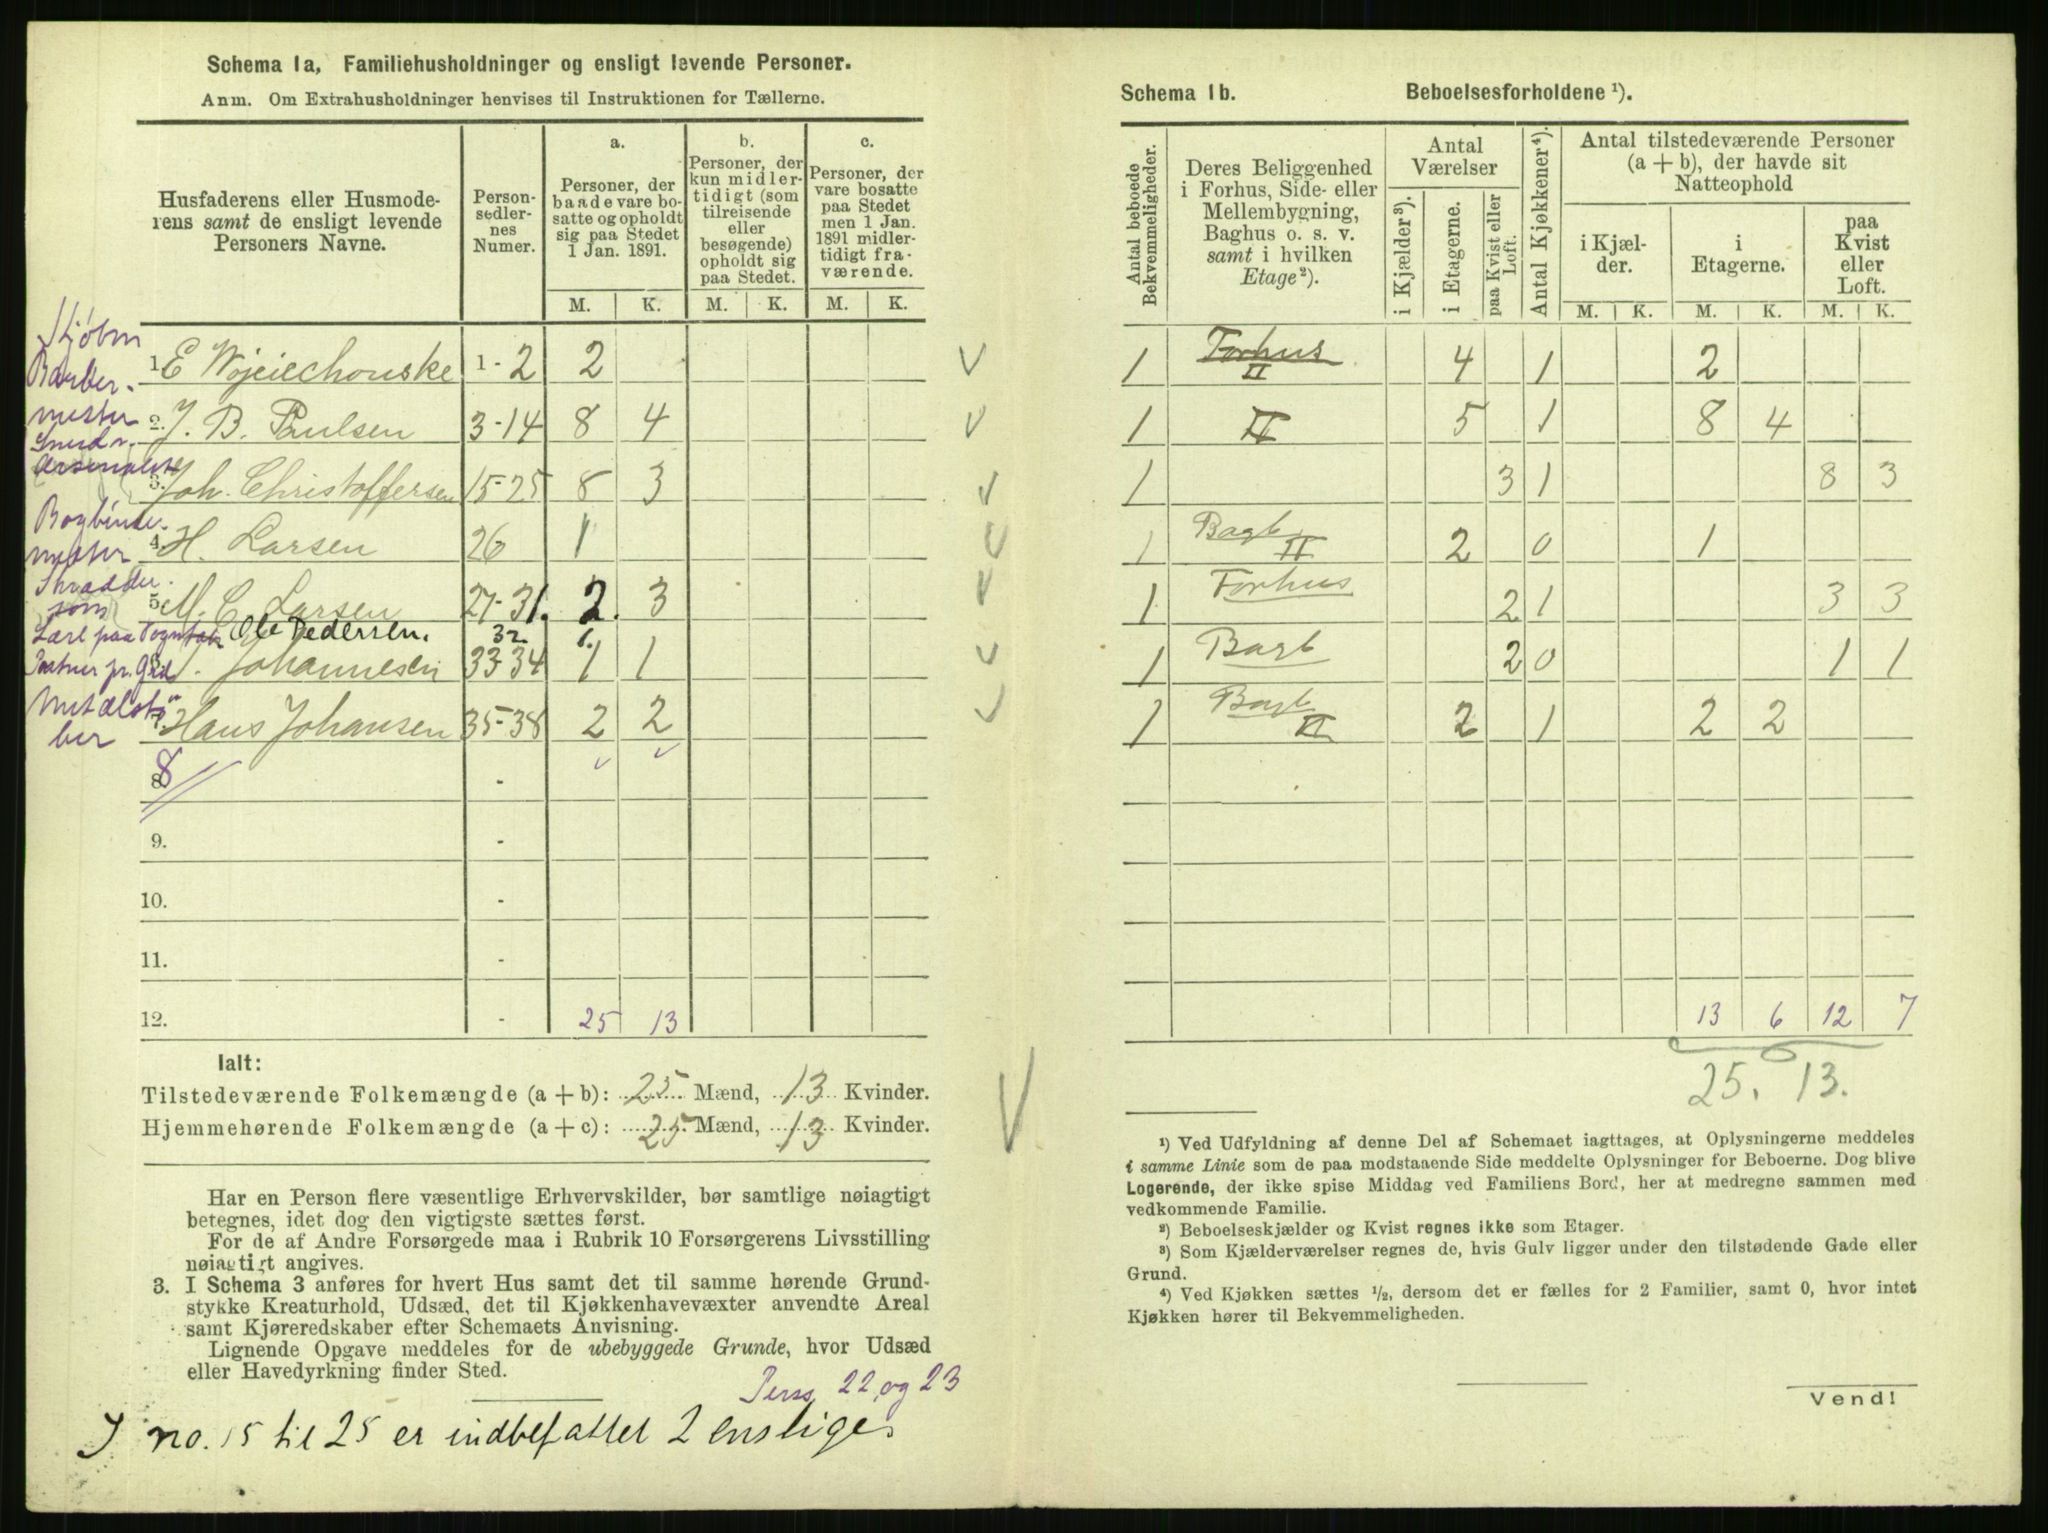 Schema 1a, Familiehusholdninger og ensligt levende Personer.
Anm. Om Extrahusholdninger henvises til Instruktionen for Tællerne.
Husfaderens eller Husmode-
rens samt de ensligt levende
Personers Navne.
Person-
sedler-
nes
Numer.
a.
Personer, der
baade vare bo-
satte og opholdt
sig paa Stedet
1 Jan. 1891.
b.
Personer, der
kun midler-
tidigt (som
tilreisende
eller
besøgende)
opholdt sig
paa Stedet.
c.
Personer, der
vare bosatte
paa Stedet
men 1 Jan.
1891 midler-
tidigt fra-
værende.
M. K. M. K. M. K.
1. E Wojciechouske 1 - 2 2
Barber-
mester
2. J. B. Paulsen 3-14 8 4
3. Joh. Christoffersen 15-25 8 3
Bogbinder-
mester
4. H. Larsen 26 1
5. M. C. Larsen 27-31. 2. 3
Ole Pedersen. 32 1.
6. J. Johannesen 33-34 1 1
7. Hans Johansen 35-38 2 2
8
8. -
9. -
10. -
11. -
12. - 25 13
Ialt:
Tilstedeværende Folkemængde (a + b): 25 Mænd, 13 Kvinder.
Hjemmehørende Folkemængde (a + c): 25 Mænd, 13 Kvinder.
Har en Person flere væsentlige Erhvervskilder, bør samtlige nøiagtigt
betegnes, idet dog den vigtigste sættes først.
For de af Andre Forsørgede maa i Rubrik 10 Forsørgerens Livsstilling
nøiagtigt angives.
3. I Schema 3 anføres for hvert Hus samt det til samme hørende Grund-
stykke Kreaturhold, Udsæd, det til Kjøkkenhavevæxter anvendte Areal
samt Kjøreredskaber efter Schemaets Anvisning.
Lignende Opgave meddeles for de ubebyggede Grunde, hvor Udsæd
eller Havedyrkning finder Sted.
Perss. 22 og 23
I no. 15 til 25 er indbefattet 2 enslige.
Schema 1b. Beboelsesforholdene ¹).
Antal beboede
Bekvemmeligheder.
Deres Beliggenhed
i Forhus, Side- eller
Mellembygning,
Baghus o. s. v.
samt i hvilken
Etage²).
Antal
Værelser
i Kjælder³).
i Etagerne.
paa Kvist eller
Loft.
Antal Kjøkkener⁴).
Antal tilstedeværende Personer
(a + b), der havde sit
Natteophold
i Kjæl-
der.
i
Etagerne.
paa
Kvist
eller
Loft.
M. K. M. K. M. K.
1 Forhus II 4 1 2
1 II 5 1 8 4
1 3 1 8 3
1 Bagb II 2 0 1
1 Forhus 2 1 3 3
1 Bagb 2 0 1 1
1 Bagb II 2 1 2 2
13 6 12 7
25. 13.
¹) Ved Udfyldning af denne Del af Schemaet iagttages, at Oplysningerne meddeles
i samme Linie som de paa modstaaende Side meddelte Oplysninger for Beboerne. Dog blive
Logerende, der ikke spise Middag ved Familiens Bord, her at medregne sammen med
vedkommende Familie.
²) Beboelseskjælder og Kvist regnes ikke som Etager.
³) Som Kjælderværelser regnes de, hvis Gulv ligger under den tilstødende Gade eller
Grund.
⁴) Ved Kjøkken sættes ½, dersom det er fælles for 2 Familier, samt 0, hvor intet
Kjøkken hører til Bekvemmeligheden.
Vend!